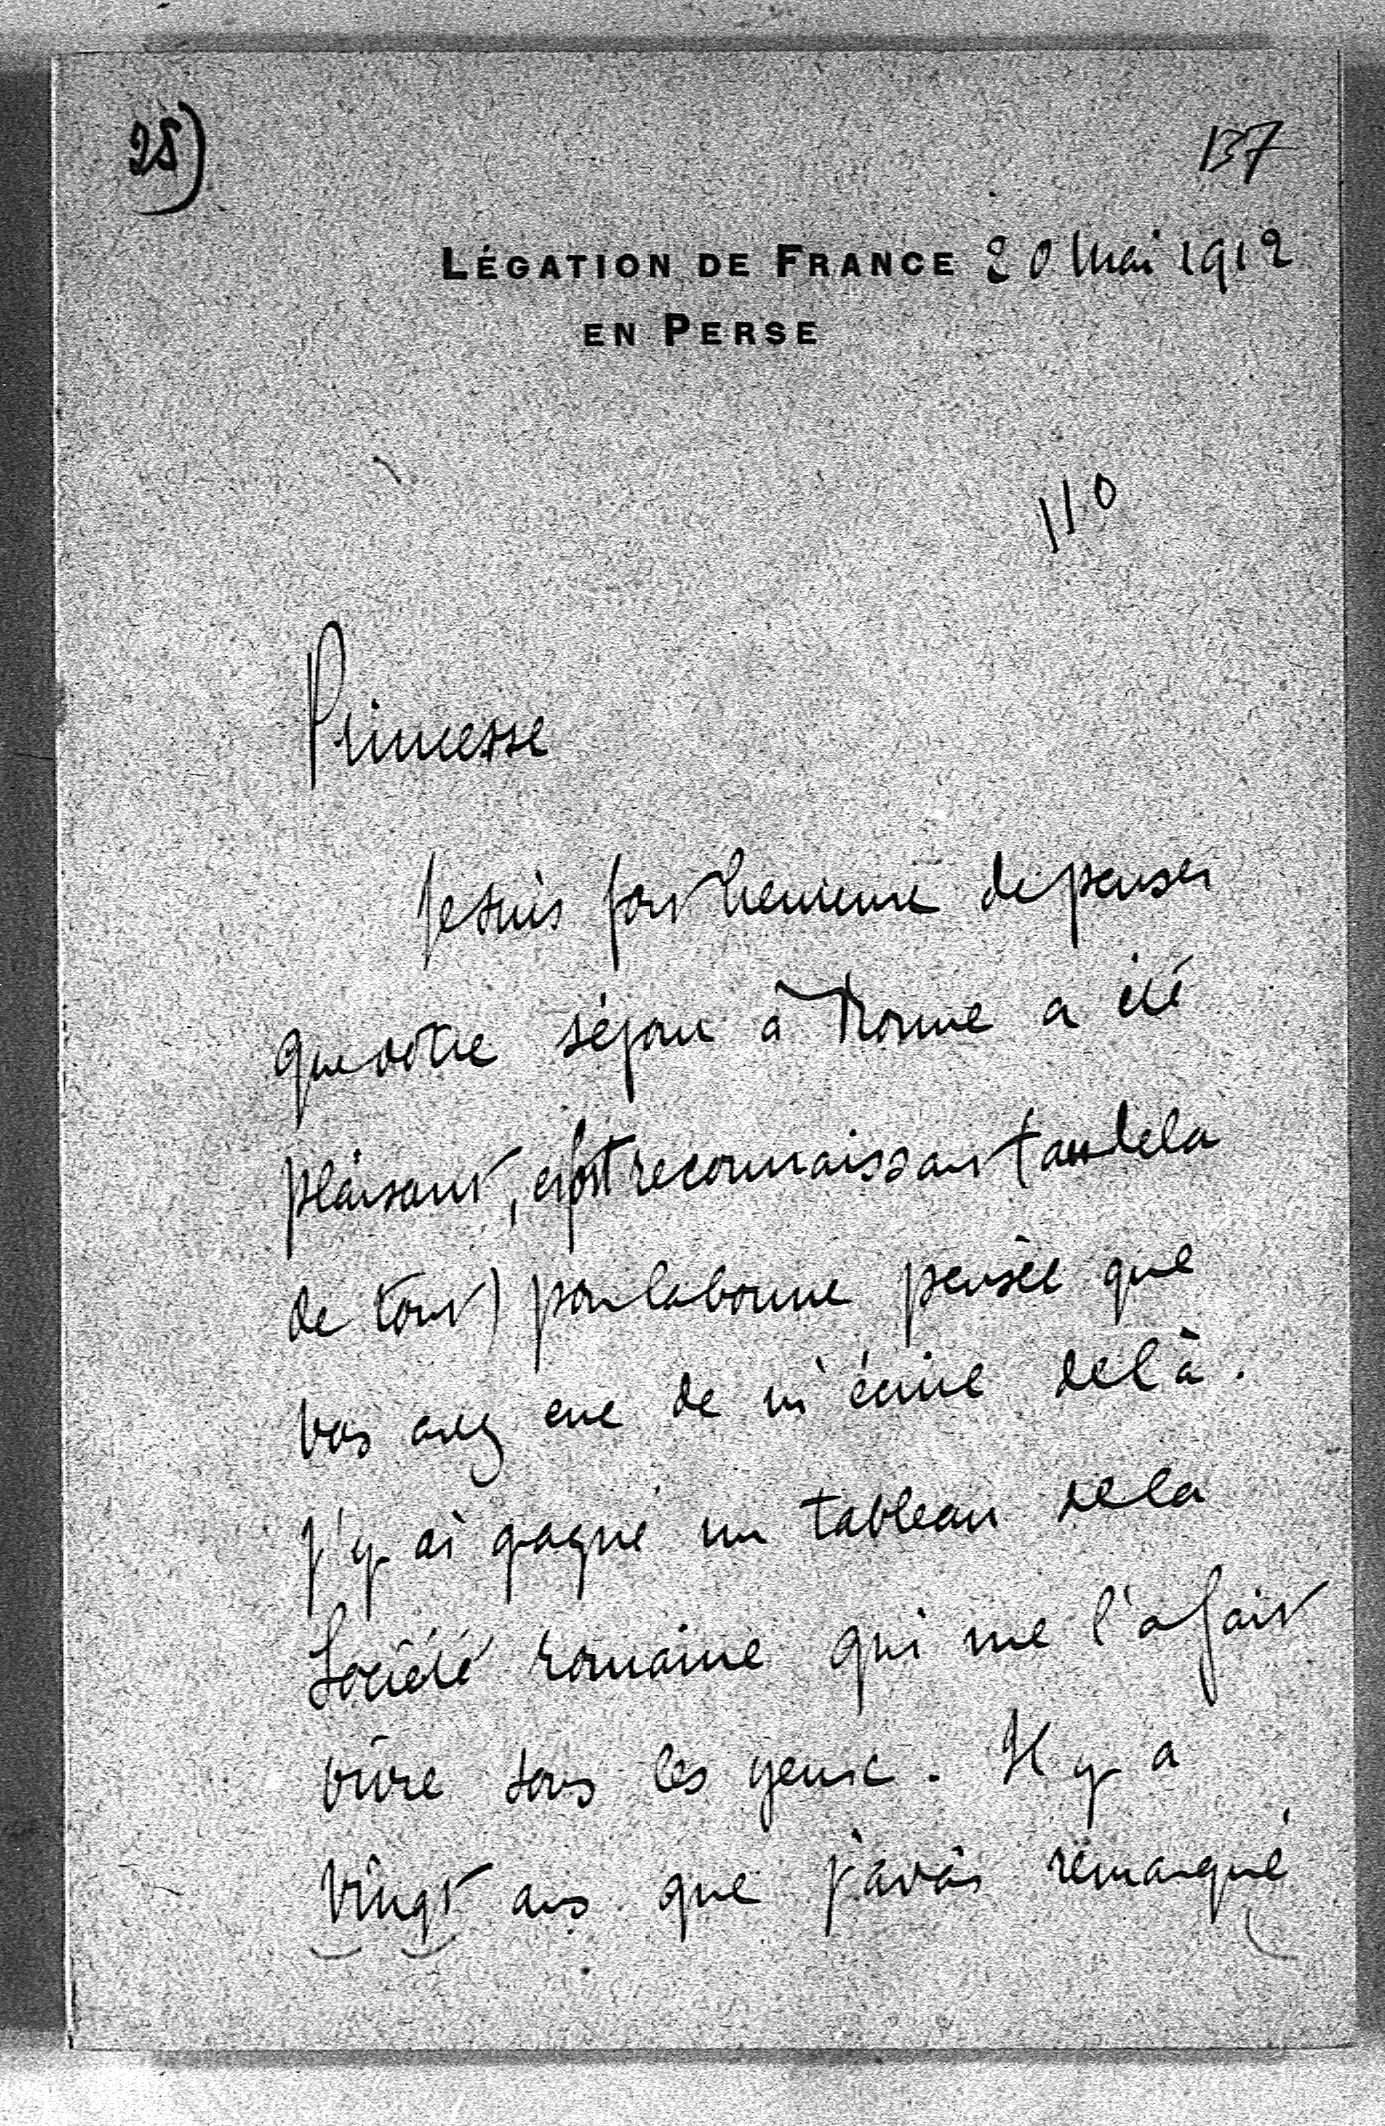 25)
137
LÉGATION DE FRANCE 20 Mai 1912
EN PERSE
110
Princesse
Je suis fort heureux de penser
que votre séjour à Rome a été
plaisant, et fort reconnaissant (au dela
de tout) pour la bonne pensée que
vous avez eue de m'écrire de là.
J'y ai gagné un tableau de la
Société romaine qui me l'a fait
vivre sous les yeux. Il y a
vingt ans que j'avais remarqué